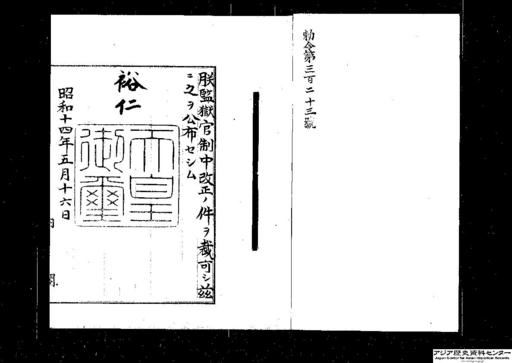 勅令第三百二十三號
朕監獄官制中改正ノ件ヲ裁可シ茲
ニ之ヲ公布セシム
裕仁
天皇御璽
昭和十四年五月十六日
内閣
アジア歴史資料センター
Japan Center for Asian Historical Records